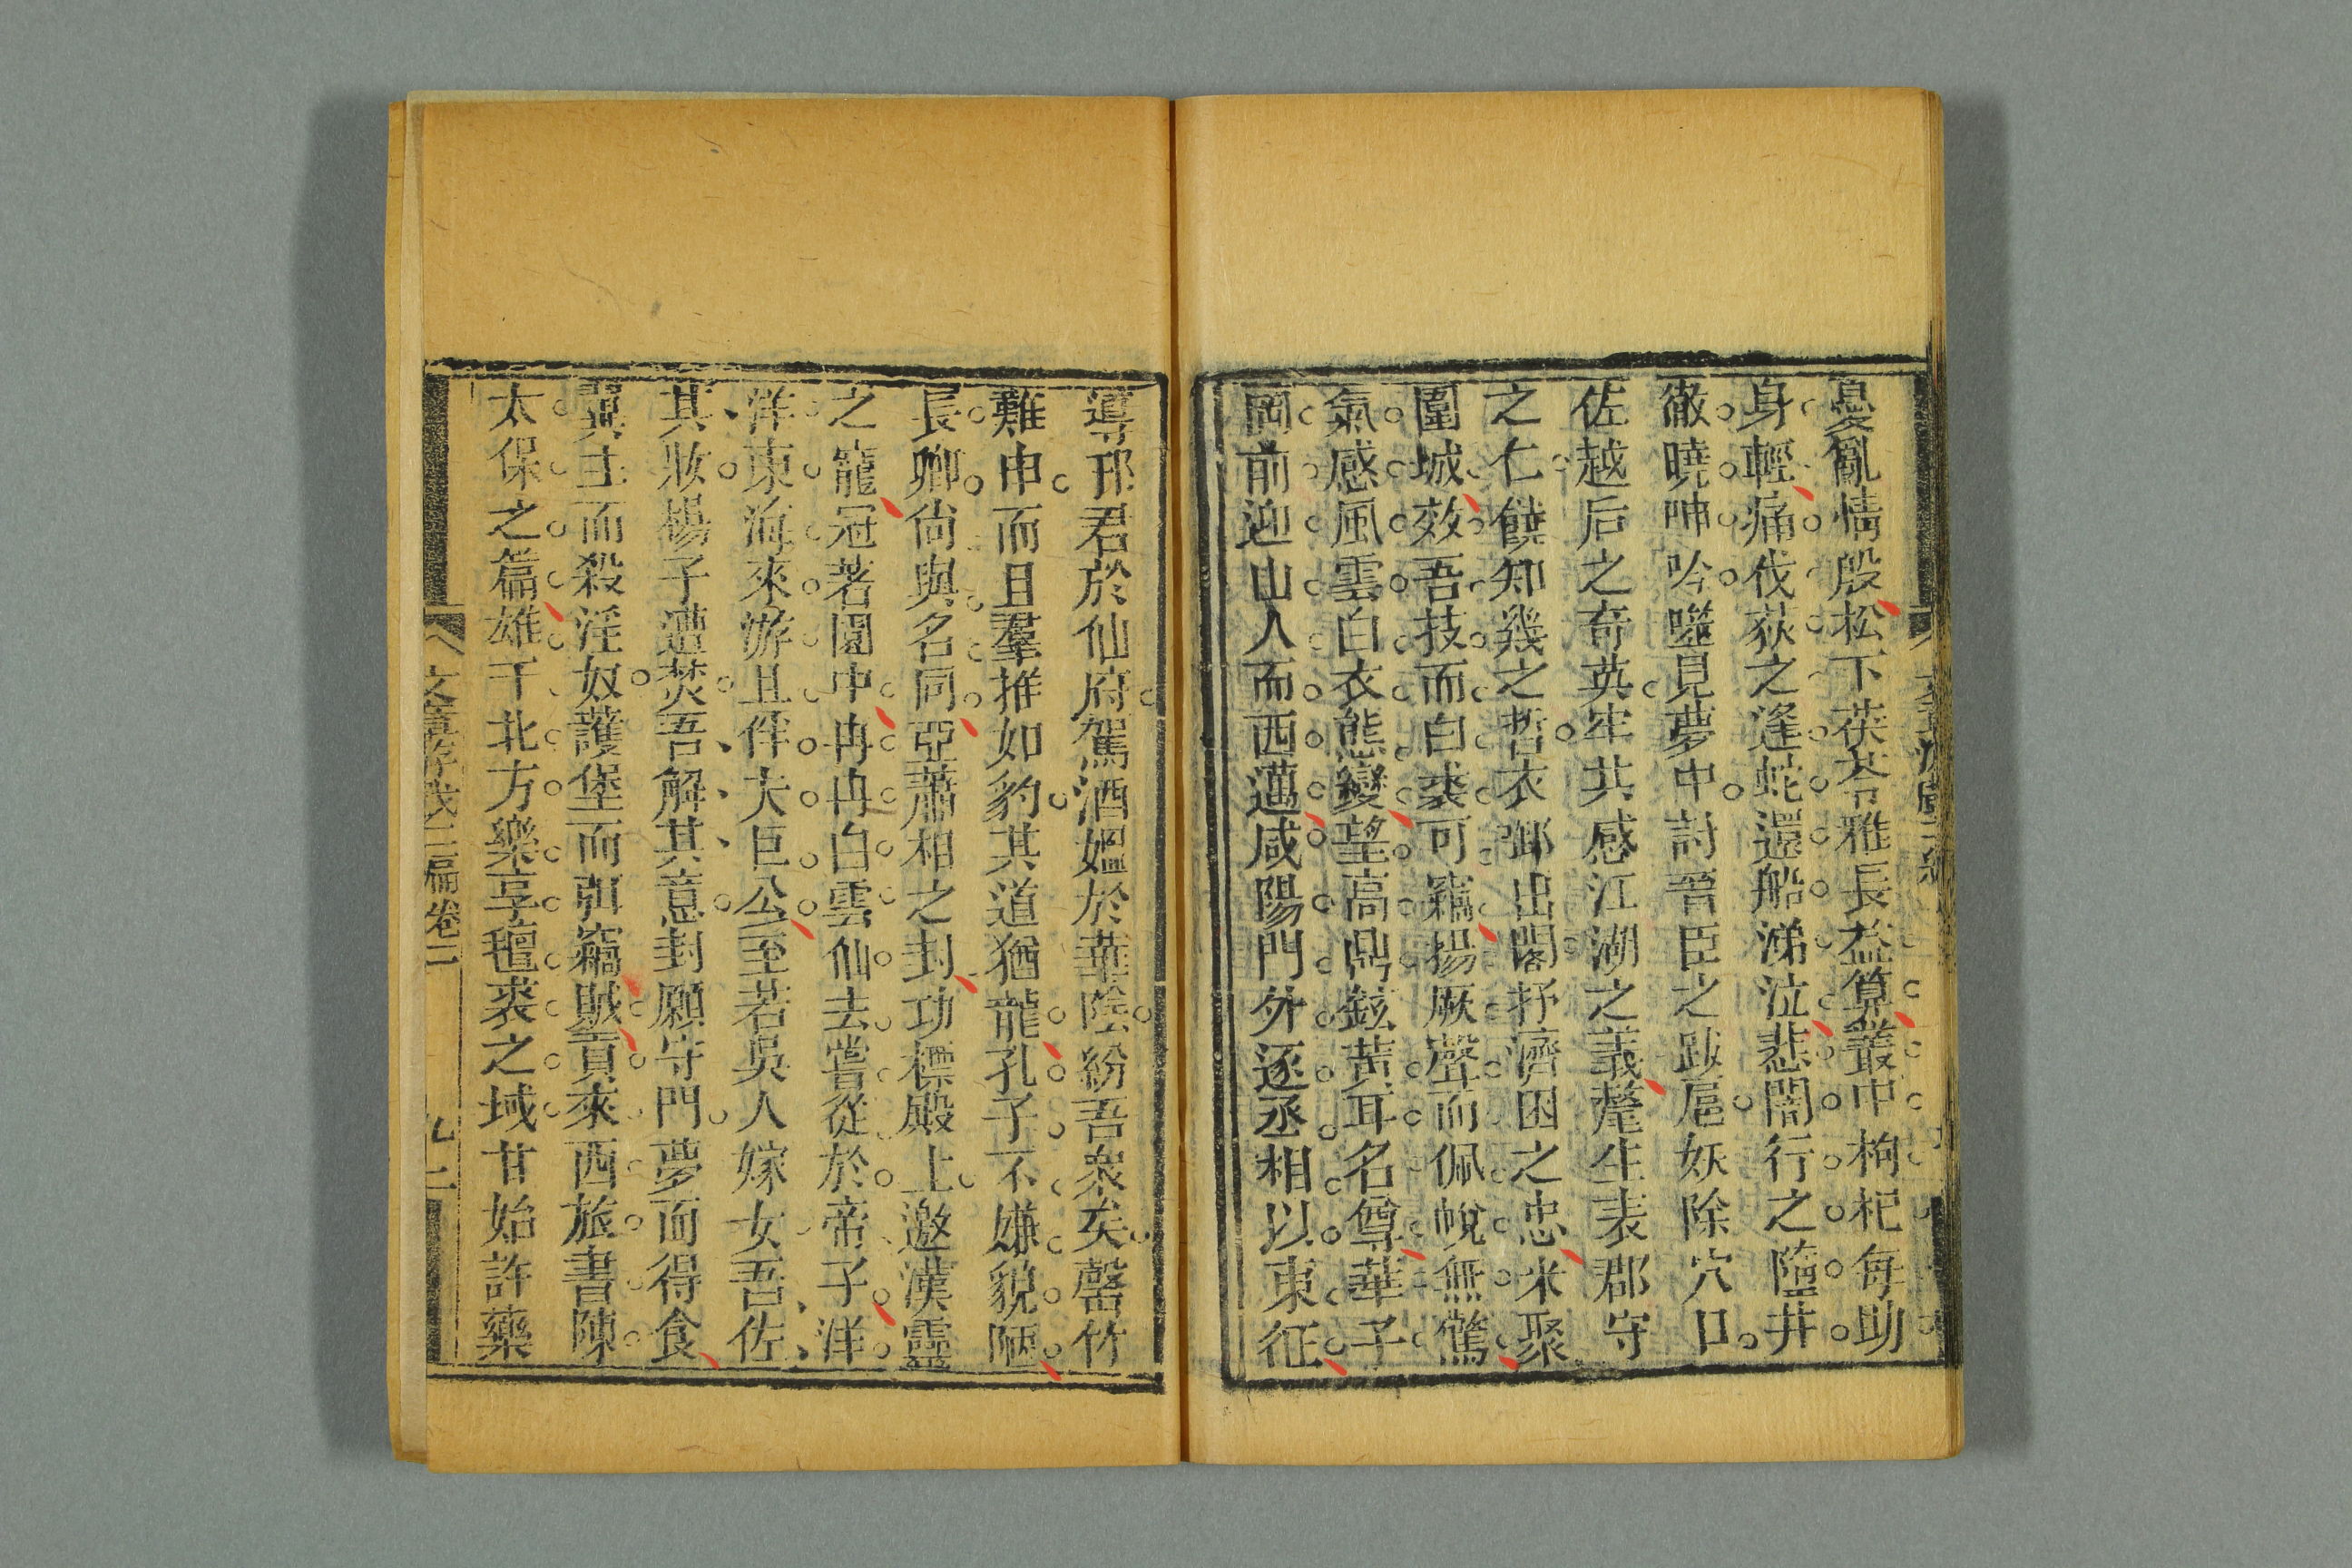 憂亂情殷松下茯苓雅長益算叢中枸杞每助
身輕痛伐荻之逢蛇還船涕泣悲闇行之墮井
徹曉呻吟噬見夢中討晉臣之跋扈妖除穴口
佐越后之奇英牢共感江湖之義麾生表郡守
之仁饋知幾之哲衣鄉出閣抒濟困之忠米聚
圍城效吾技而白裘可竊揚厥聲而佩帨無驚
氣感風雲白衣態變望高鼎鉉黃耳名尊華子
岡前迎山人而西邁咸陽門外逐丞相以東征
導邗君於仙府駕酒媼於華陰紛吾衆矣罄竹
難申而且羣推如豹其道猶龍孔子不嫌貌陋
長卿尙與名同亞蕭相之封功標殿上邀漢靈
之寵冠著園中冉冉白雲仙去嘗從於帝子洋
洋東海來游且伴夫巨公至若吳人嫁女吾佐
其妝楊子遭焚吾解其意封願守門夢而得食
異主而殺淫奴護堡而弭竊賊貢來西旅書陳
太保之篇雄千北方樂享氊裘之域甘始許藥
卷二
九二